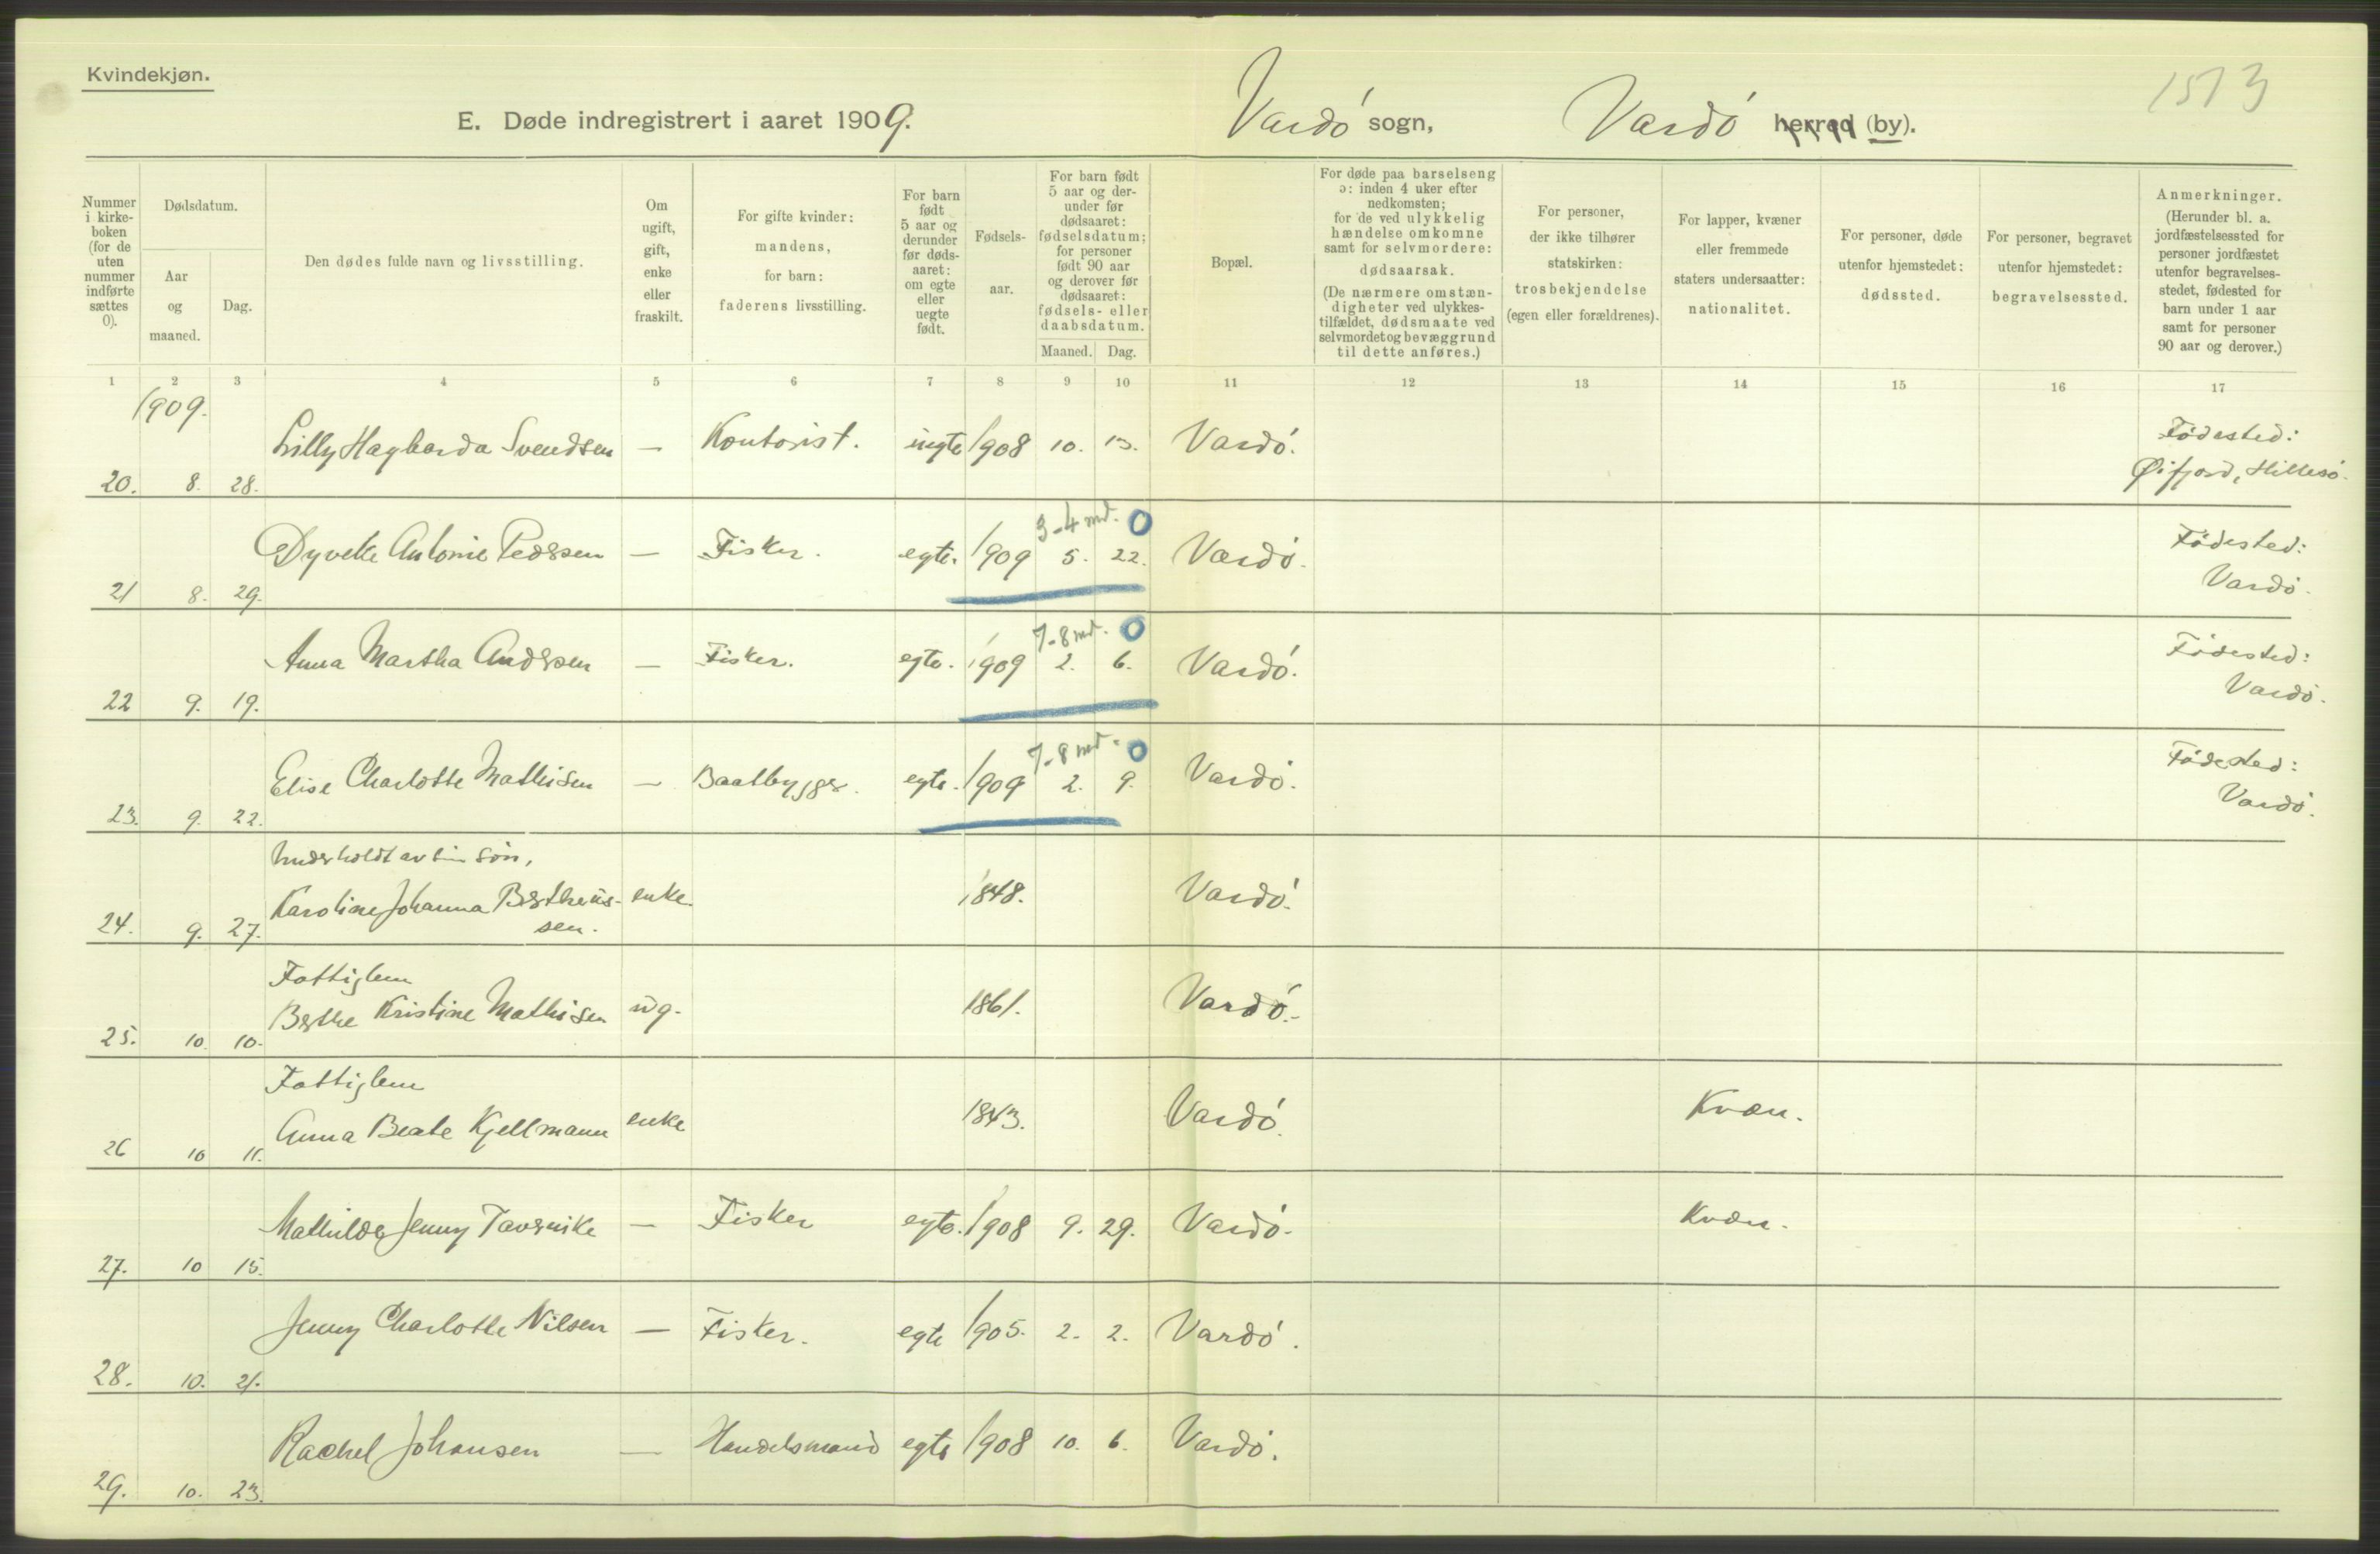 Kvindekjøn.
1513
E. Døde indregistrert i aaret 1909. Vardö sogn, Vardö herred (by).
Nummer
i kirke-
boken
(for de
uten
nummer
indførte
sættes
0).
Dødsdatum.
Aar
og
maaned.
Dag.
Den dødes fulde navn og livsstilling.
Om
ugift,
gift,
enke
eller
fraskilt.
For gifte kvinder:
mandens,
for barn:
faderens livsstilling.
For barn
født
5 aar og
derunder
før døds-
aaret:
om egte
eller
uegte
født.
Fødsels-
aar.
For barn født
5 aar og der-
under før
dødsaaret:
fødselsdatum;
for personer
født 90 aar
og derover før
dødsaaret:
fødsels- eller
daabsdatum.
Maaned. Dag.
Bopæl.
For døde paa barselseng
ɔ: inden 4 uker efter
nedkomsten;
for de ved ulykkelig
hændelse omkomne
samt for selvmordere:
dødsaarsak.
(De nærmere omstæn-
digheter ved ulykkes-
tilfældet, dødsmaate ved
selvmordet og bevæggrund
til dette anføres.)
For personer,
der ikke tilhører
statskirken:
trosbekjendelse
(egen eller forældrenes).
For lapper, kvæner
eller fremmede
staters undersaatter:
nationalitet.
For personer, døde
utenfor hjemstedet:
dødssted.
For personer, begravet
utenfor hjemstedet:
begravelsessted.
Anmerkninger.
(Herunder bl. a.
jordfæstelsessted for
personer jordfæstet
utenfor begravelses-
stedet, fødested for
barn under 1 aar
samt for personer
90 aar og derover.)
1 2 3 4 5 6 7 8 9 10 11 12 13 14 15 16 17
1909.
20. 8. 28. Lilly Hagbarda Svendsen — Kontorist. uegte 1908 10. 13. Vardö. Födested:
Øifjord, Hillesö.
3-4 md. 0
21 8. 29. Dyveke Antonie Pedersen — Fisker. egte. 1909 5. 22. Vardö. Födested:
Vardö.
7-8 md. 0
22 9. 19. Anna Martha Andersen — Fisker. egte. 1909 2. 6. Vardö. Födested:
Vardö.
7-8 md. 0
23. 9. 22. Elise Charlotte Mathisen — Baatbygger. egte. 1909 2. 9. Vardö. Födested:
Vardö.
Underholdt av sin sön,
24. 9. 27. Karoline Johanna Bertheus- enke. 1848. Vardö.
sen.
Fattiglem
25. 10. 10. Berthe Kristine Mathisen ug. 1861. Vardö.
Fattiglem
26 10 11. Anna Beate Kjellmann enke 1843. Vardö. Kvæn.
27. 10 15. Mathilde Jenny Tavernike — Fisker egte. 1908 9. 29. Vardö. Kvæn.
28. 10. 21. Jenny Charlotte Nilsen — Fisker. egte 1905. 2. 2. Vardö.
29. 10. 23. Rachel Johansen — Handelsmand egte 1908 10. 6. Vardö.